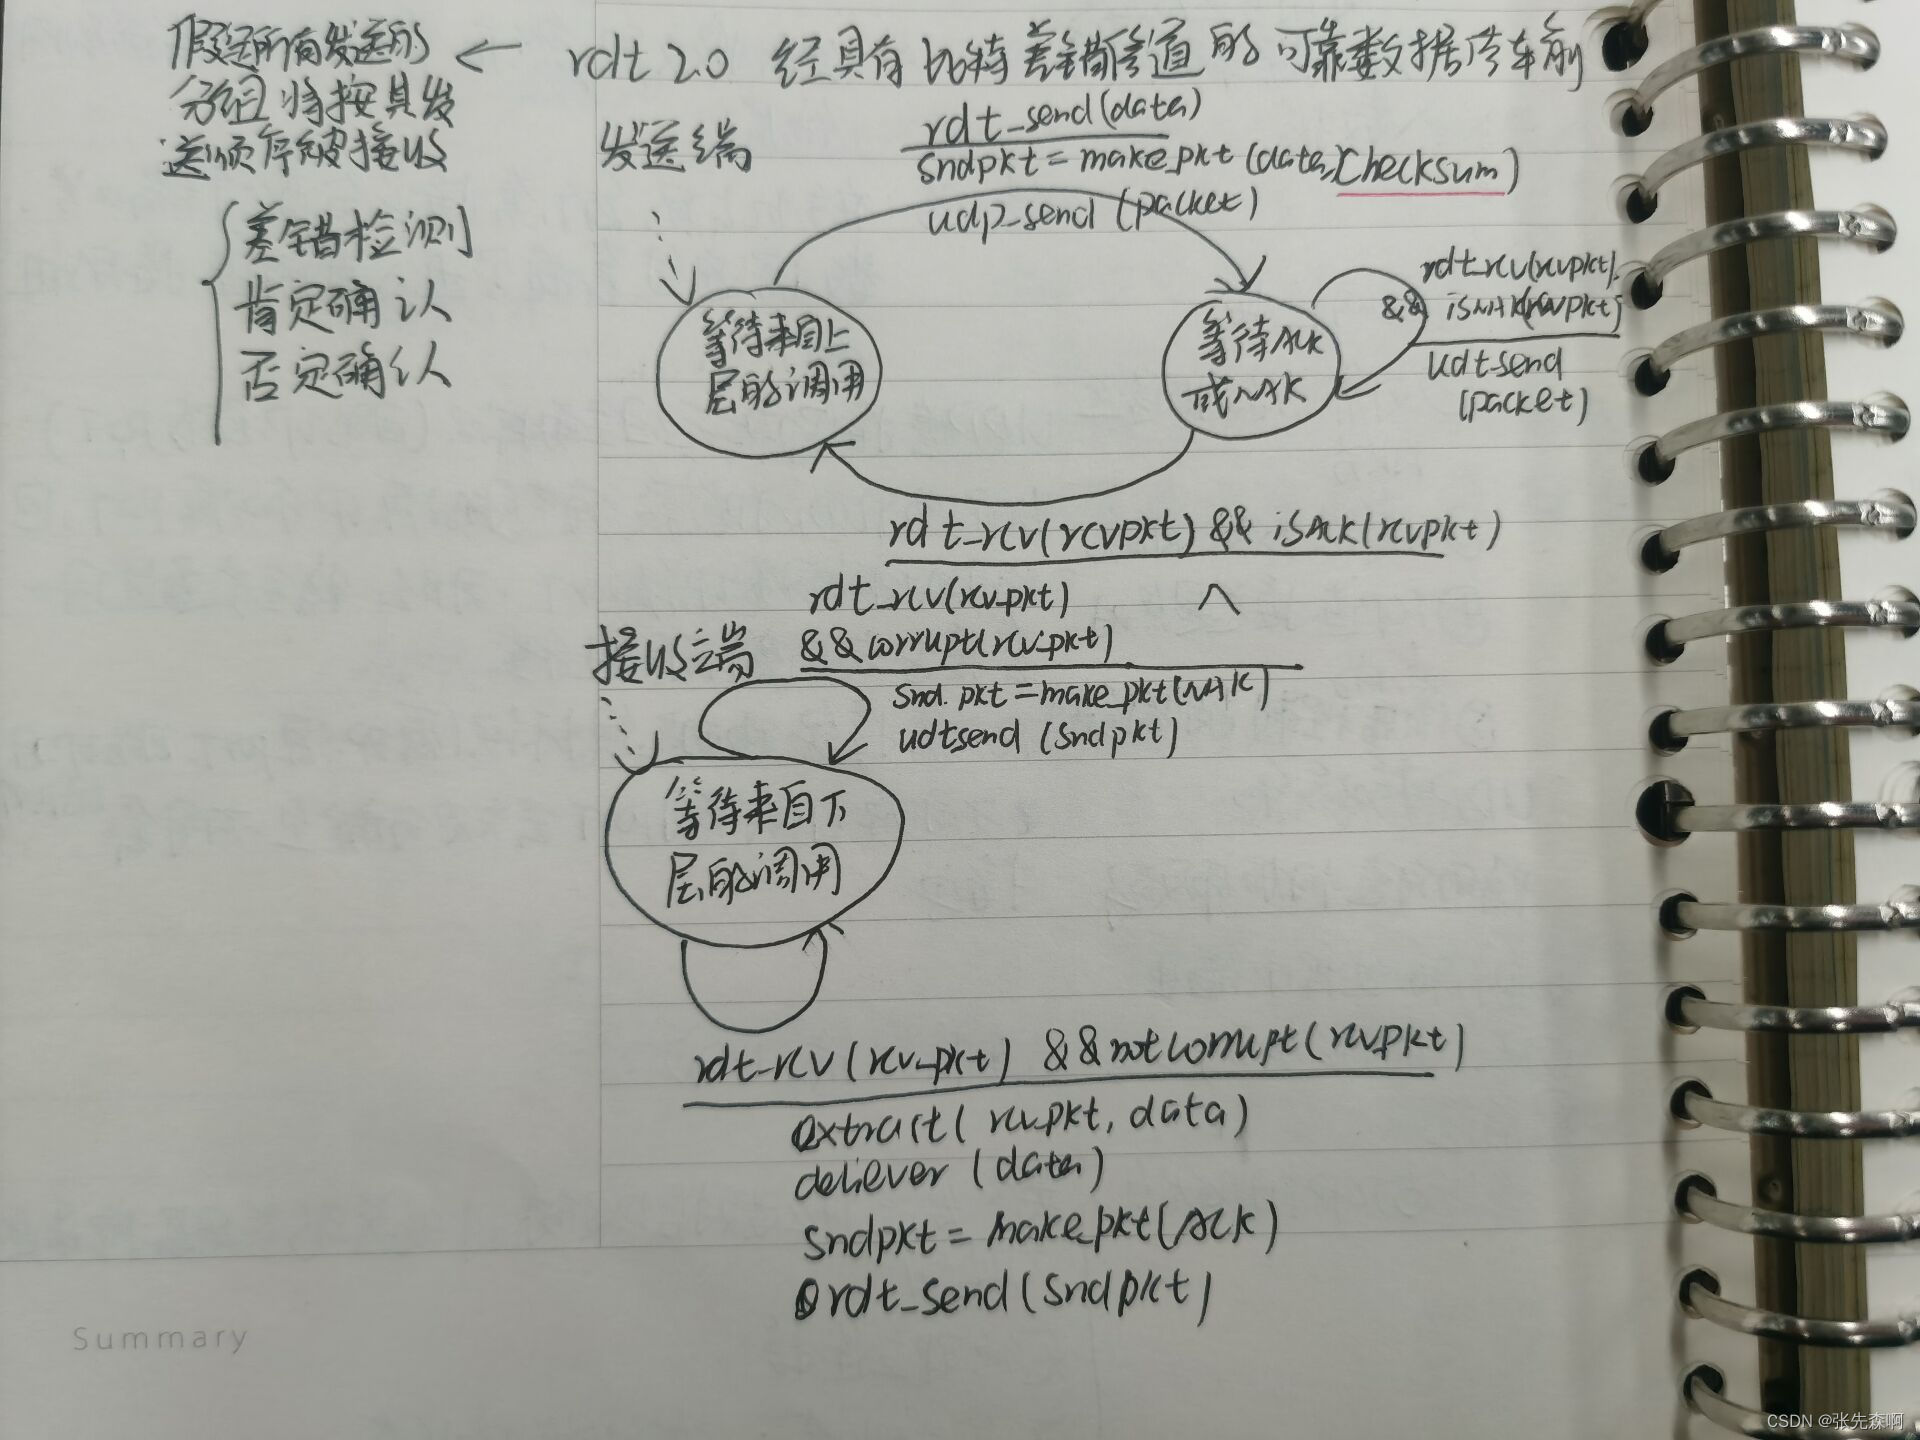 假定所有发送的
分组将按其发
送顺序被接收
差错检测
肯定确认
否定确认
← rdt 2.0 经具有比特差错信道的可靠数据传输
发送端
rdt_send(data)
sndpkt = make_pkt (data, Checksum)
udp_send (packet)
等待来自上
层的调用
等待ACK
或NAK
rdt_rcv(rcvpkt)
&& isNAK(rcvpkt)
udt send
(packet)
rdt_rcv(rcvpkt) && isACK(rcvpkt)
Λ
接收端
rdt_rcv(rcv_pkt)
&& corrupt(rcv_pkt)
snd_pkt = make_pkt(NAK)
udtsend (sndpkt)
等待来自下
层的调用
rdt_rcv (rcv_pkt) && notcorrupt (rcv_pkt)
extract( rcv_pkt, data)
deliever (data)
sndpkt = make_pkt(ACK)
rdt_send (sndpkt)
Summary
CSDN @张先森啊